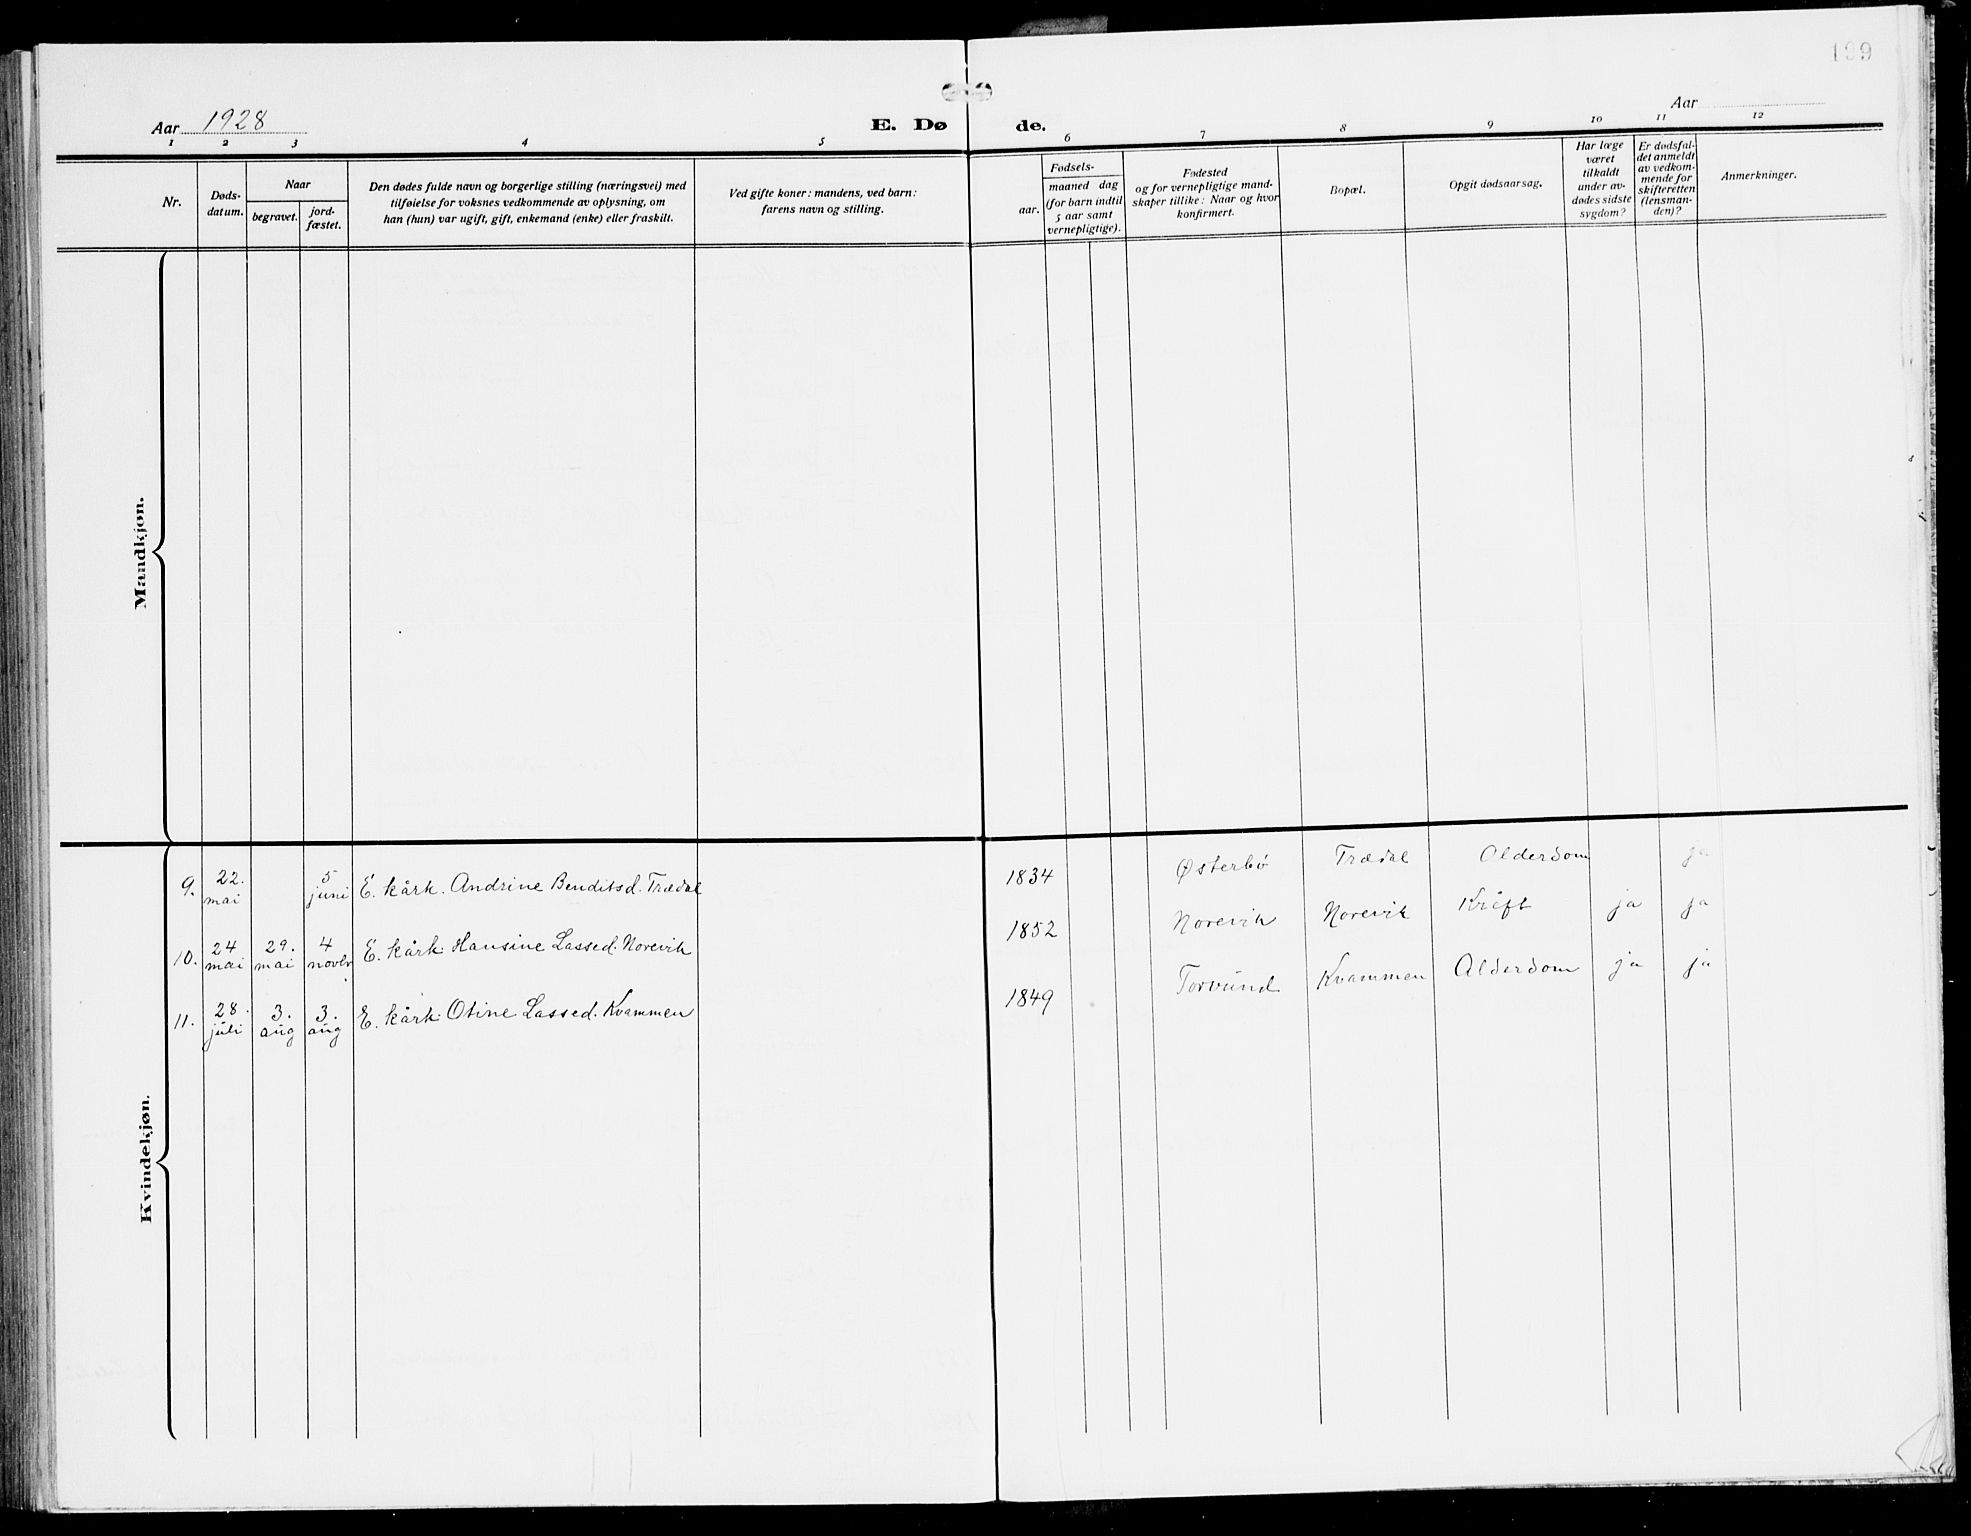 199
Aar 1928
E. Døde.
Aar
1 2 3 4 5 6 7 8 9 10 11 12
Nr.
Døds-
datum.
Naar
begravet.
jord-
fæstet.
Den dødes fulde navn og borgerlige stilling (næringsvei) med
tilføielse for voksnes vedkommende av oplysning, om
han (hun) var ugift, gift, enkemand (enke) eller fraskilt.
Ved gifte koner: mandens, ved barn:
farens navn og stilling.
Fødsels-
aar.
maaned dag
(for barn indtil
5 aar samt
vernepligtige).
Fødested
og for vernepligtige mand-
skaper tillike: Naar og hvor
konfirmert.
Bopæl.
Opgit dødsaarsag.
Har læge
været
tilkaldt
under av-
dødes sidste
sygdom?
Er dødsfal-
det anmeldt
av vedkom-
mende for
skifteretten
(lensman-
den)?
Anmerkninger.
Mandkjøn.
Kvindekjøn.
9. 22. mai 5 juni E. kårk. Andrine Benditsd. Trædal 1834 Østerbø Trædal Alderdom ja
10. 24 mai 29. mai 4 novbr E. kårk. Hansine Lassed. Norevik 1852 Norevik Norevik Kræft ja ja
11. 28. juli 3. aug 3. aug E. kårk. Otine Lassed. Kvammen 1849 Torvund Kvammen Alderdom ja ja